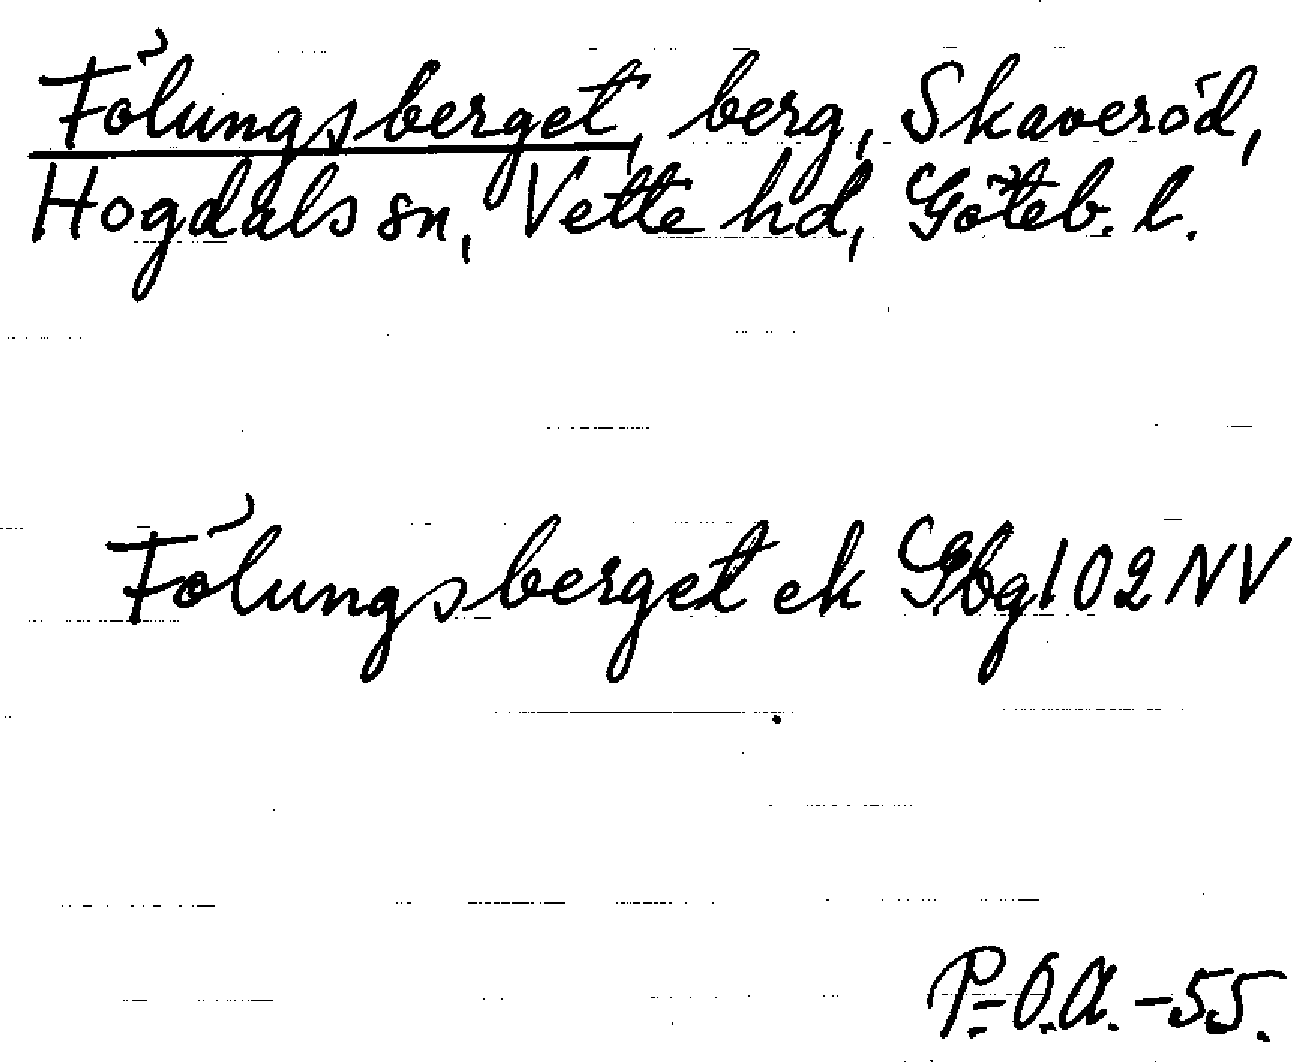 Fölungsberget, berg, Skaveröd,
Hogdals sn, Vette hd, Göteb. l.
Fölungsberget ek Gbg 102 NV
P.-O.A. -55.